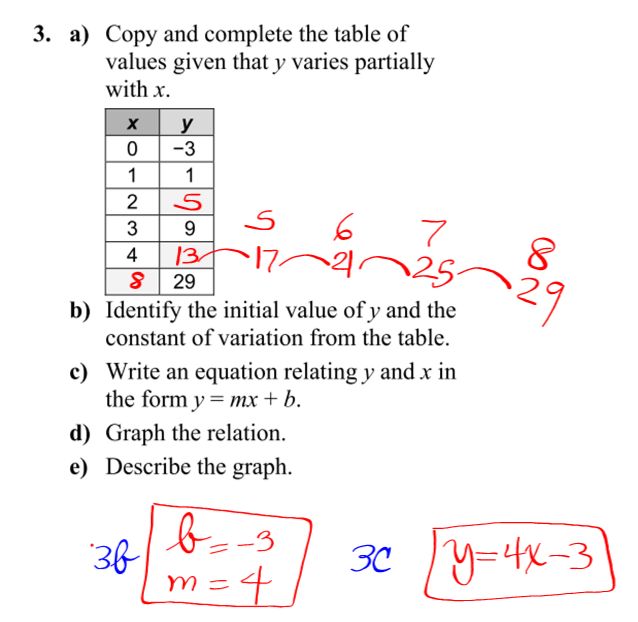 3. a) Copy and complete the table of
values given that y varies partially
with x.
x y
0 −3
1 1
2 5
3 9
4 13 17 21 25 29
5 6 7 8
8 29
b) Identify the initial value of y and the
constant of variation from the table.
c) Write an equation relating y and x in
the form y = mx + b.
d) Graph the relation.
e) Describe the graph.
3b b = -3
m = 4
3C y=4x-3